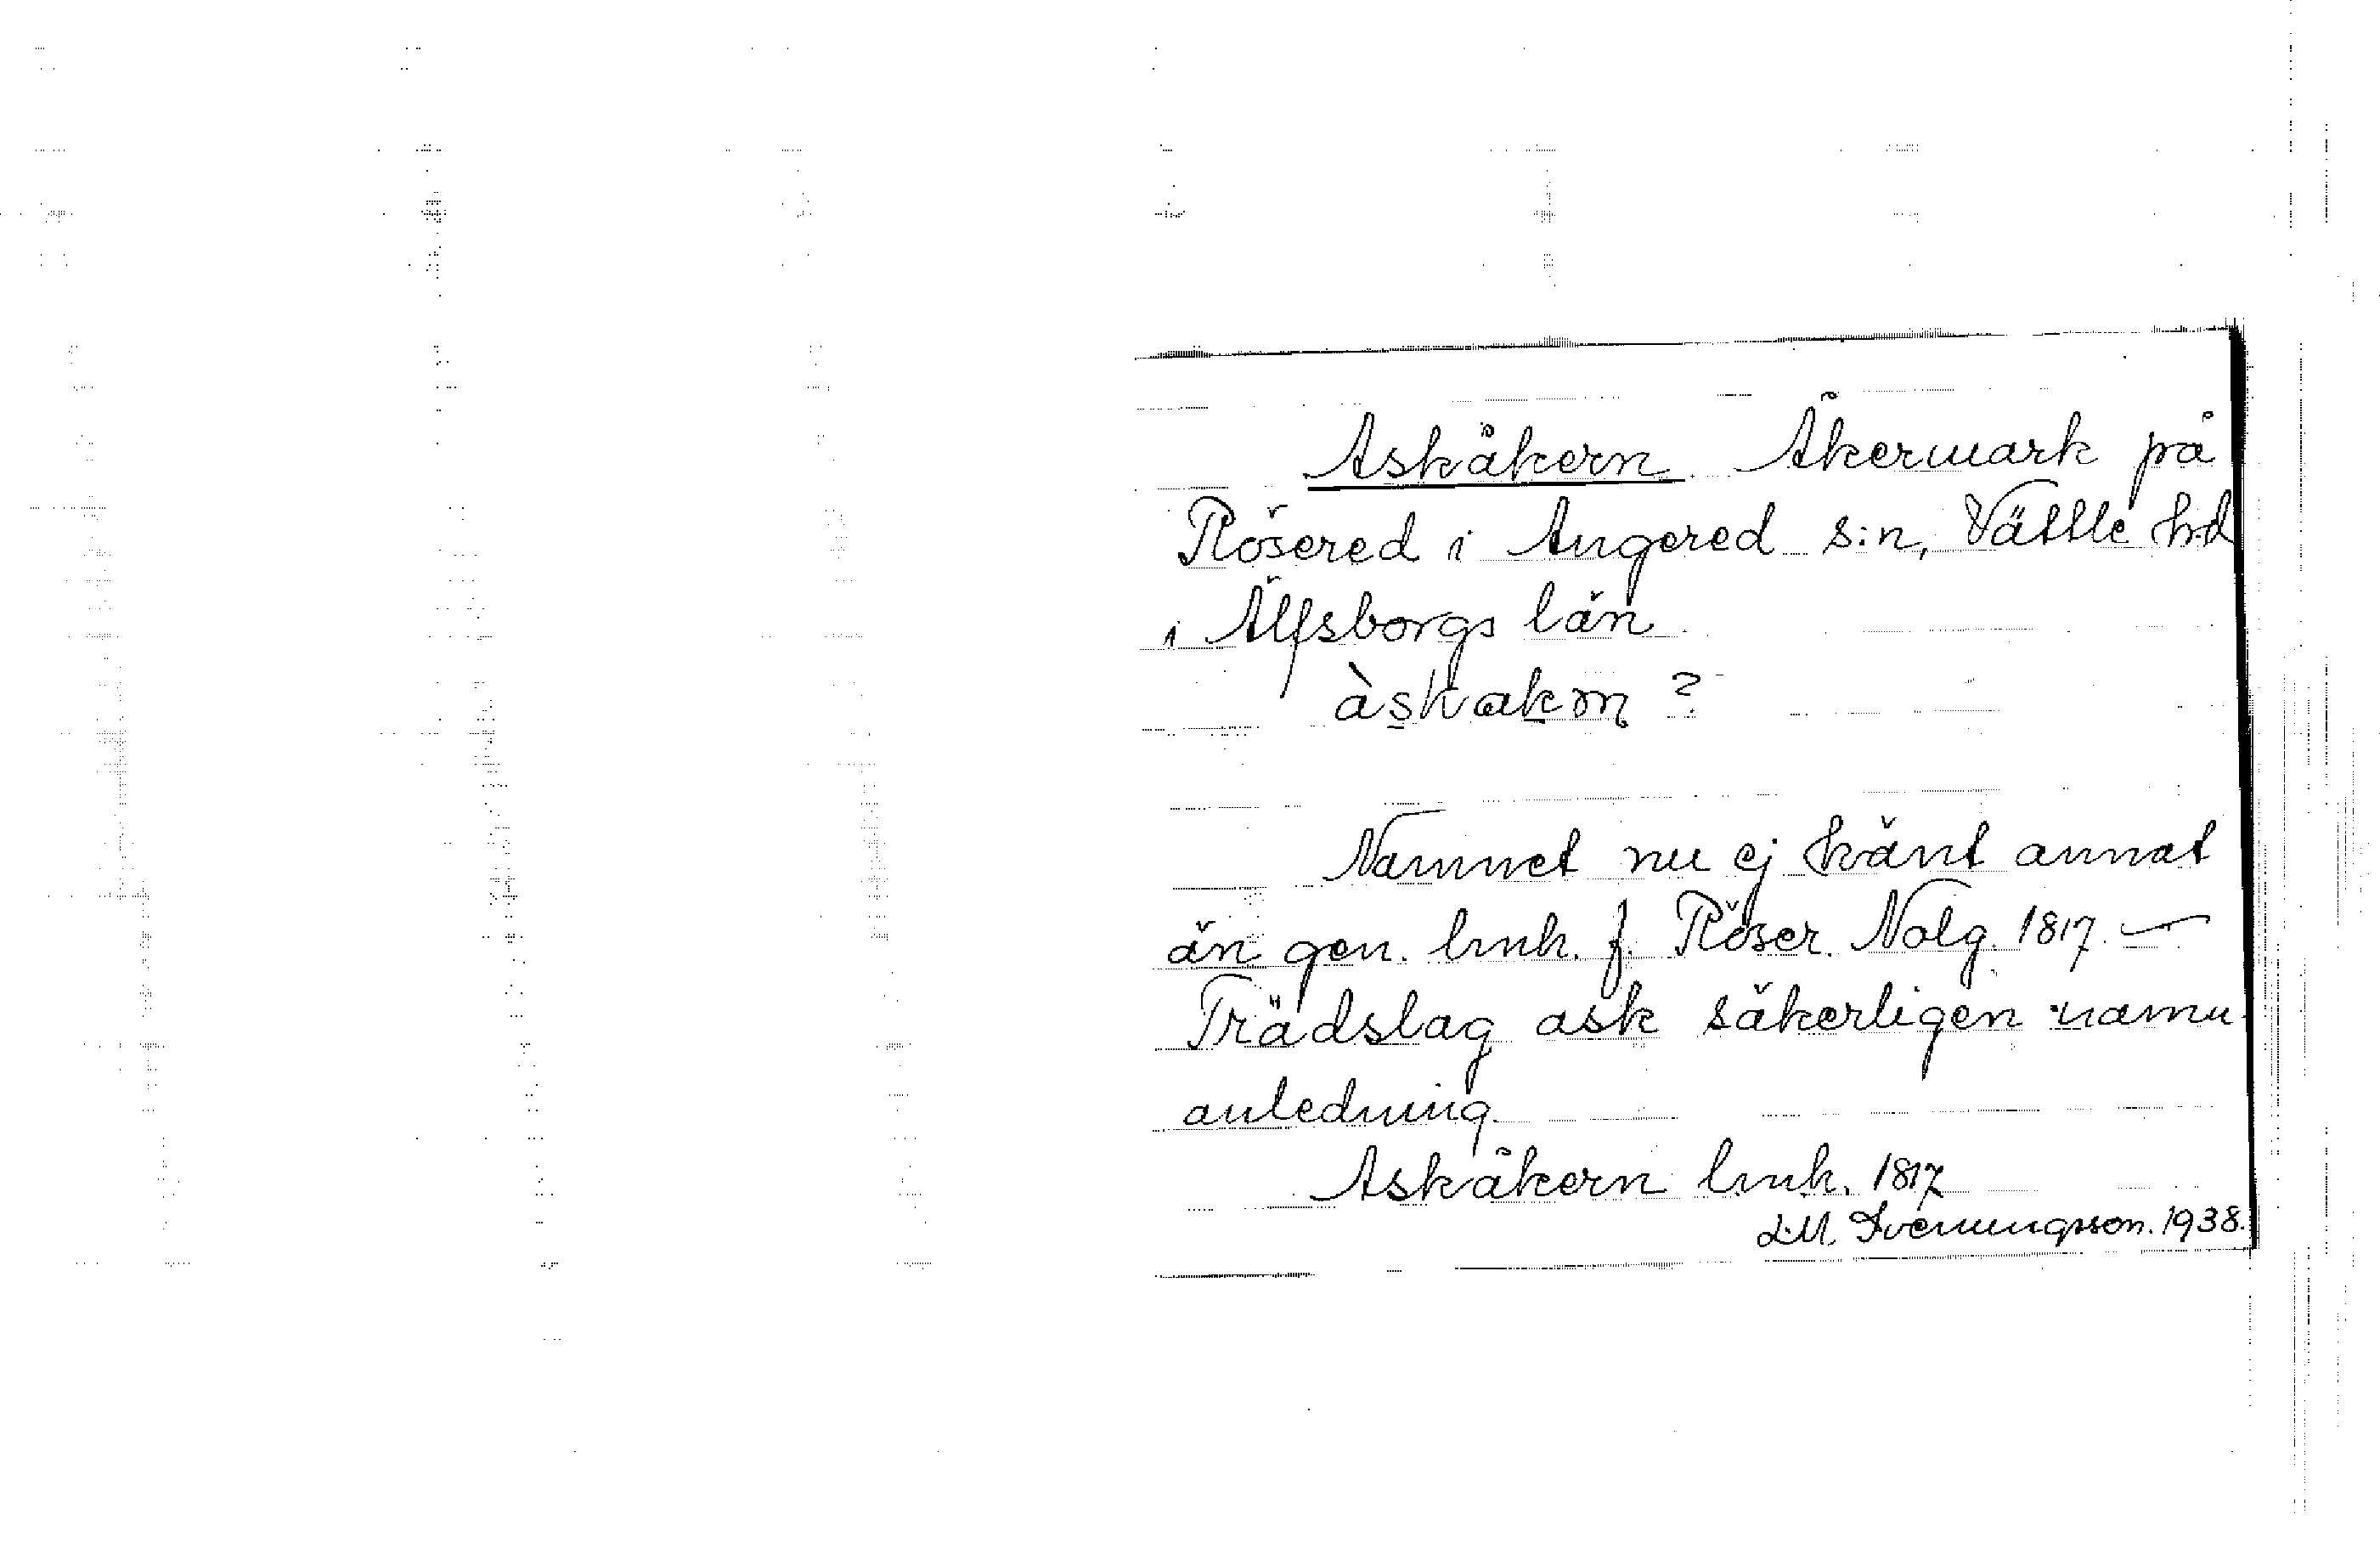 Askåkern. Åkermark på
Rösered i Angered s:n, Vättle hd
i Älfsborgs län
àskakm ?
Namnet nu ej känt annat
än gen. lmk. f. Röser. Nolg. 1817. —
Trädslag ask säkerligen namn
anledning.
Askåkern lmk. 1817
L.M. Svenungsson. 1938.